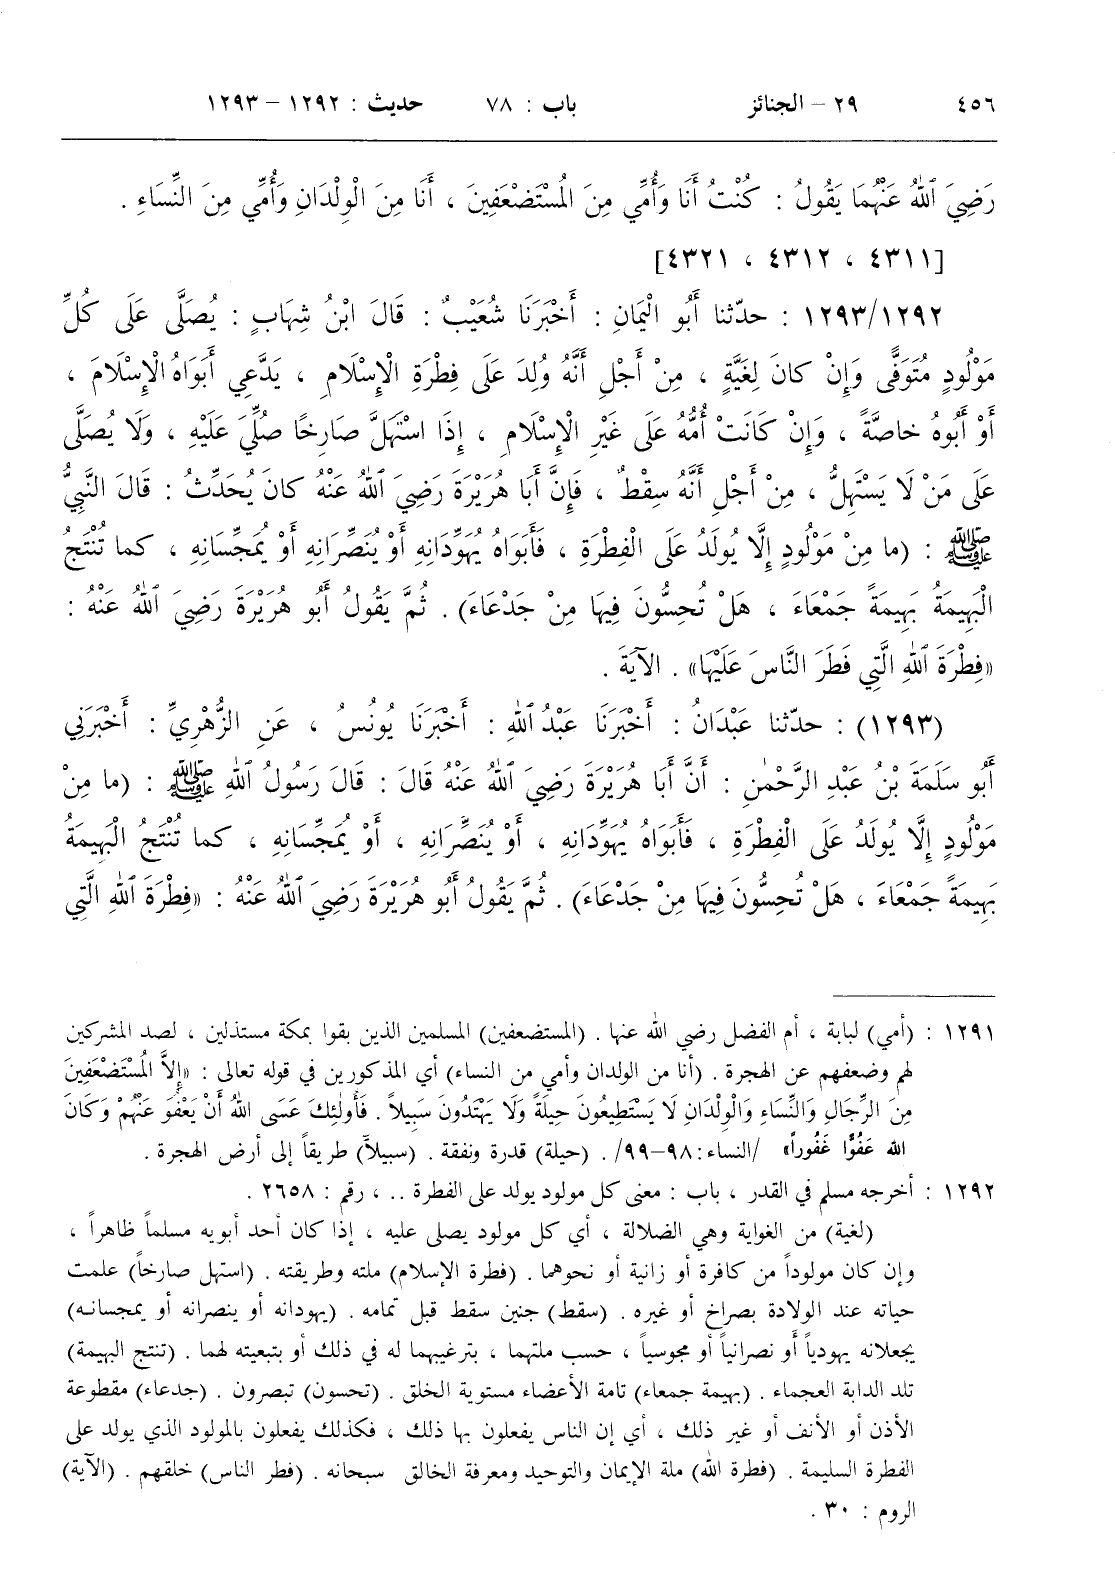 ٤٥٦ ٢٩ – الجنائز باب : ٧٨ حديث : ١٢٩٢ – ١٢٩٣
رَضِيَ ٱللهُ عَنْهُمَا يَقُولُ : كُنْتُ أَنَا وَأُمِّي مِنَ الْمُسْتَضْعَفِينَ ، أَنَا مِنَ الْوِلْدَانِ وَأُمِّي مِنَ النِّسَاءِ .
[٤٣١١ ، ٤٣١٢ ، ٤٣٢١]
١٢٩٣/١٢٩٢ : حدّثنا أَبُو الْيَمَانِ : أَخْبَرَنَا شُعَيْبٌ : قَالَ ابْنُ شِهَابٍ : يُصَلَّى عَلَى كُلِّ
مَوْلُودٍ مُتَوَفًّى وَإِنْ كانَ لِغَيَّةٍ ، مِنْ أَجْلِ أَنَّهُ وُلِدَ عَلَى فِطْرَةِ الْإِسْلَامِ ، يَدَّعِي أَبَوَاهُ الْإِسْلَامَ ،
أَوْ أَبُوهُ خاصَّةً ، وَإِنْ كَانَتْ أُمُّهُ عَلَى غَيْرِ الْإِسْلَامِ ، إِذَا اسْتَهَلَّ صَارِخًا صُلِّيَ عَلَيْهِ ، وَلَا يُصَلَّى
عَلَى مَنْ لَا يَسْتَهِلُّ ، مِنْ أَجْلِ أَنَّهُ سِقْطٌ ، فَإِنَّ أَبَا هُرَيْرَةَ رَضِيَ ٱللهُ عَنْهُ كانَ يُحَدِّثُ : قَالَ النَّبِيُّ
ﷺ : (ما مِنْ مَوْلُودٍ إِلَّا يُولَدُ عَلَى الْفِطْرَةِ ، فَأَبَوَاهُ يُهَوِّدَانِهِ أَوْ يُنَصِّرَانِهِ أَوْ يُمَجِّسَانِهِ ، كما تُنْتَجُ
الْبَهِيمَةُ بَهِيمَةً جَمْعَاءَ ، هَلْ تُحِسُّونَ فِيهَا مِنْ جَدْعَاءَ) . ثُمَّ يَقُولُ أَبُو هُرَيْرَةَ رَضِيَ ٱللهُ عَنْهُ :
«فِطْرَةَ ٱللهِ الَّتِي فَطَرَ النَّاسَ عَلَيْهَا» . الآيَةَ .
(١٢٩٣) : حدّثنا عَبْدَانُ : أَخْبَرَنَا عَبْدُ ٱللهِ : أَخْبَرَنَا يُونُسُ ، عَنِ الزُّهْرِيِّ : أَخْبَرَنِي
أَبُو سَلَمَةَ بْنُ عَبْدِ الرَّحْمٰنِ : أَنَّ أَبَا هُرَيْرَةَ رَضِيَ ٱللهُ عَنْهُ قَالَ : قَالَ رَسُولُ ٱللهِ ﷺ : (ما مِنْ
مَوْلُودٍ إِلَّا يُولَدُ عَلَى الْفِطْرَةِ ، فَأَبَوَاهُ يُهَوِّدَانِهِ ، أَوْ يُنَصِّرَانِهِ ، أَوْ يُمَجِّسَانِهِ ، كما تُنْتَجُ الْبَهِيمَةُ
بَهِيمَةً جَمْعَاءَ ، هَلْ تُحِسُّونَ فِيهَا مِنْ جَدْعَاءَ) . ثُمَّ يَقُولُ أَبُو هُرَيْرَةَ رَضِيَ ٱللهُ عَنْهُ : «فِطْرَةَ ٱللهِ الَّتِي
١٢٩١ : (أمي) لبابة ، أم الفضل رضي الله عنها . (المستضعفين) المسلمين الذين بقوا بمكة مستذلين ، لصد المشركين
لهم وضعفهم عن الهجرة . (أنا من الولدان وأمي من النساء) أي المذكورين في قوله تعالى : «إِلاَّ الْمُسْتَضْعَفِينَ
مِنَ الرِّجَالِ وَالنِّسَاءِ وَالْوِلْدَانِ لَا يَسْتَطِيعُونَ حِيلَةً وَلَا يَهْتَدُونَ سَبِيلاً . فَأُولٰئِكَ عَسَى اللهُ أَنْ يَعْفُوَ عَنْهُمْ وَكَانَ
الله عَفُوًّا غَفُوراً» /النساء: ٩٨–٩٩/ . (حيلة) قدرة ونفقة . (سبيلاً) طريقاً إلى أرض الهجرة .
١٢٩٢ : أخرجه مسلم في القدر ، باب : معنى كل مولود يولد على الفطرة .. ، رقم : ٢٦٥٨ .
(لغية) من الغواية وهي الضلالة ، أي كل مولود يصلى عليه ، إذا كان أحد أبويه مسلماً ظاهراً ،
وإن كان مولوداً من كافرة أو زانية أو نحوهما . (فطرة الإسلام) ملته وطريقته . (استهل صارخاً) علمت
حياته عند الولادة بصراخ أو غيره . (سقط) جنين سقط قبل تمامه . (يهودانه أو ينصرانه أو يمجسانه)
يجعلانه يهودياً أو نصرانياً أو مجوسياً ، حسب ملتهما ، بترغيبهما له في ذلك أو بتبعيته لهما . (تنتج البهيمة)
تلد الدابة العجماء . (بهيمة جمعاء) تامة الأعضاء مستوية الخلق . (تحسون) تبصرون . (جدعاء) مقطوعة
الأذن أو الأنف أو غير ذلك ، أي إن الناس يفعلون بها ذلك ، فكذلك يفعلون بالمولود الذي يولد على
الفطرة السليمة . (فطرة الله) ملة الإيمان والتوحيد ومعرفة الخالق سبحانه . (فطر الناس) خلقهم . (الآية)
الروم : ٣٠ .